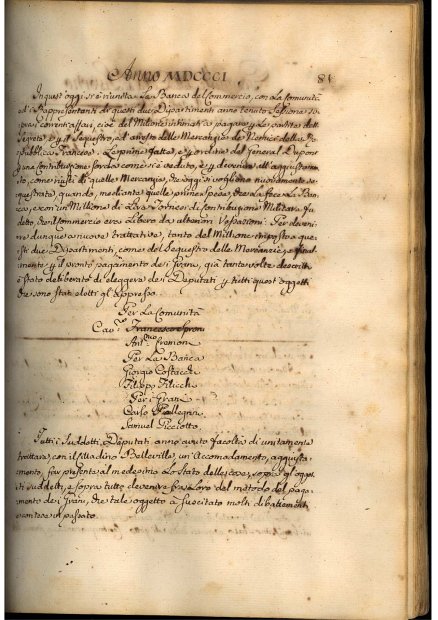 Anno MDCCCI 81
In quest'oggi si è riunita La Banca del Commercio, con La Comunità
ed i Rappresentanti di questi due Dipartimenti anno tenuto Sessione so-
pra i correnti affari, cioè del Milione intimato a pagare, La perdita dell
Segreto, e y il Sequestro, ed aresto delle Mercanzie de Nemici della Re-
pubblica Francese. Le prime fatte, e y ordine del General Dupont
una Contribuzione sorda come si è veduto, e y devenire all'acquistamen-
to, come risulti di quelle Mercanzie, che oggi si vogliono nuovamente se-
questrate, quando, mediante quelle prime spese,
e con un Millione di Lire Tornesi di Contribuzione Militare, fu
detto, che il Commercio era Libero da ulteriori Vessazioni: Per deveni-
re dunque a nuove trattative, tanto del Millione imposto a que-
sti due Dipartimenti, come del Sequestro delle Mercanzie, e final-
mente y il pronto pagamento de i Grani, già tante volte descritti
è stato deliberato di eleggere de i Deputati y tutti quest'oggetti
che sono stati eletti gl'appresso.
Per La Comunità
Cav.re Francesco Sproni
Ant.nio Cremoni
Per La Banca
Giorgio Costacchi
Filippo Filicchi
Per i Grani
Carlo Pellegrini
Samuel Picciotto.
Tutti i Suddetti, Deputati anno avuto facoltà di unitamente
trattare, con il Cittadino Belleville, un'Accomodamento, aggiusta-
mento, far presente al medesimo Lo stato delle cose, sopra gl'ogget-
ti suddetti, e sopra tutto devenire fra loro del metodo del paga-
mento de i Grani, che tale oggetto à suscitato molti dibattimenti
e contese in passato.